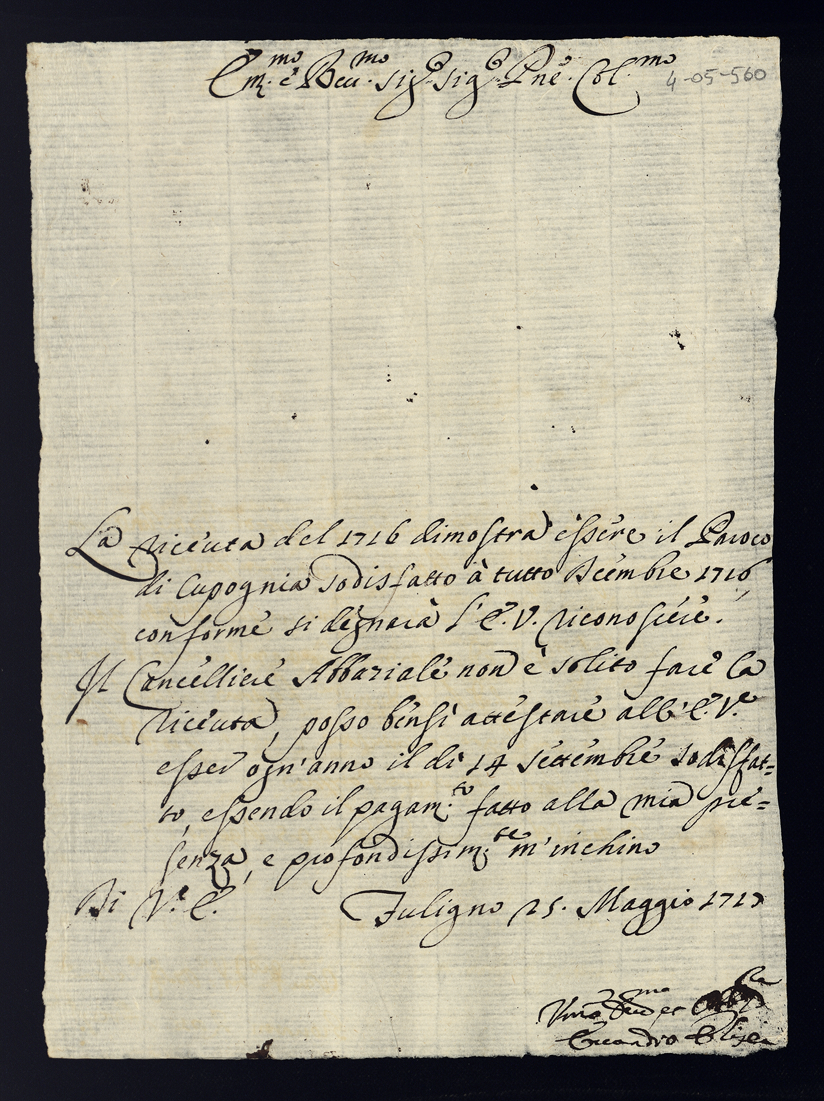 Em.mo e Reu.mo Sig.re Sig.re Pne. Col.mo
4-05-560
La riceuta del 1716 dimostra essere il Paroco
di Cupognia sodisfatto à tutto Xcembre 1716,
conforme si degnarà l'E.V. riconoscere.
Il Cancelliere Abbaziale non è solito fare la
riceuta, posso bensì attestare all'E.V.e
esser ogn'anno il dì 14 Settembre sodisfat=
to, essendo il pagam.to fatto alla mia pre=
senza, e profondissim.te m'inchino
Di V.e E. Fuligno 25. Maggio 1717